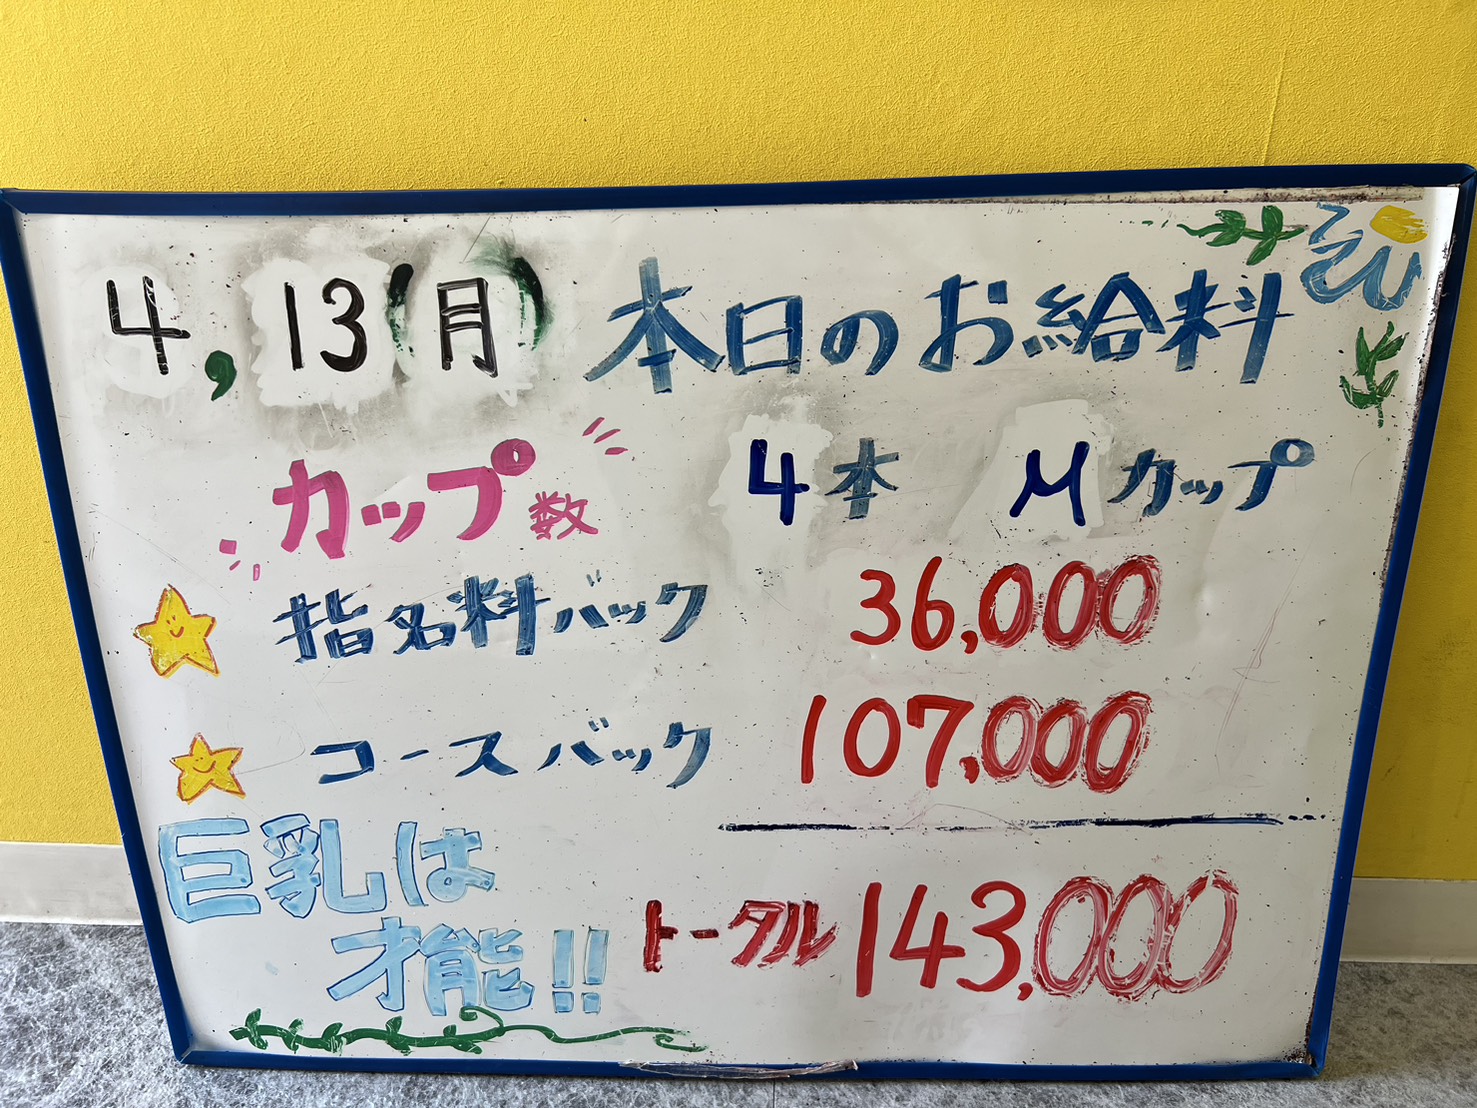 4,13(月) 本日のお給料
カップ数 4本 Mカップ
指名料バック 36,000
コースバック 107,000
巨乳は
才能!!
トータル 143,000